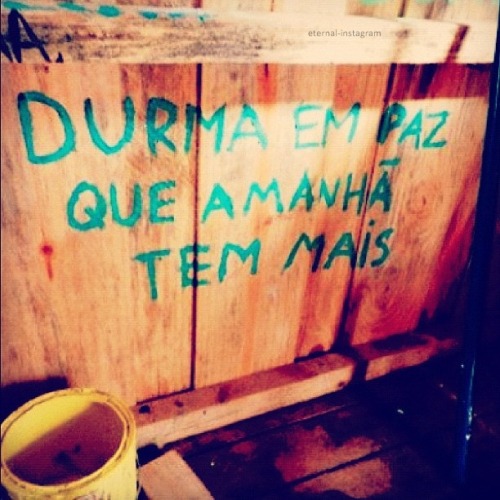 eternal-instagram
A.
DURMA EM PAZ
QUE AMANHÃ
TEM MAIS